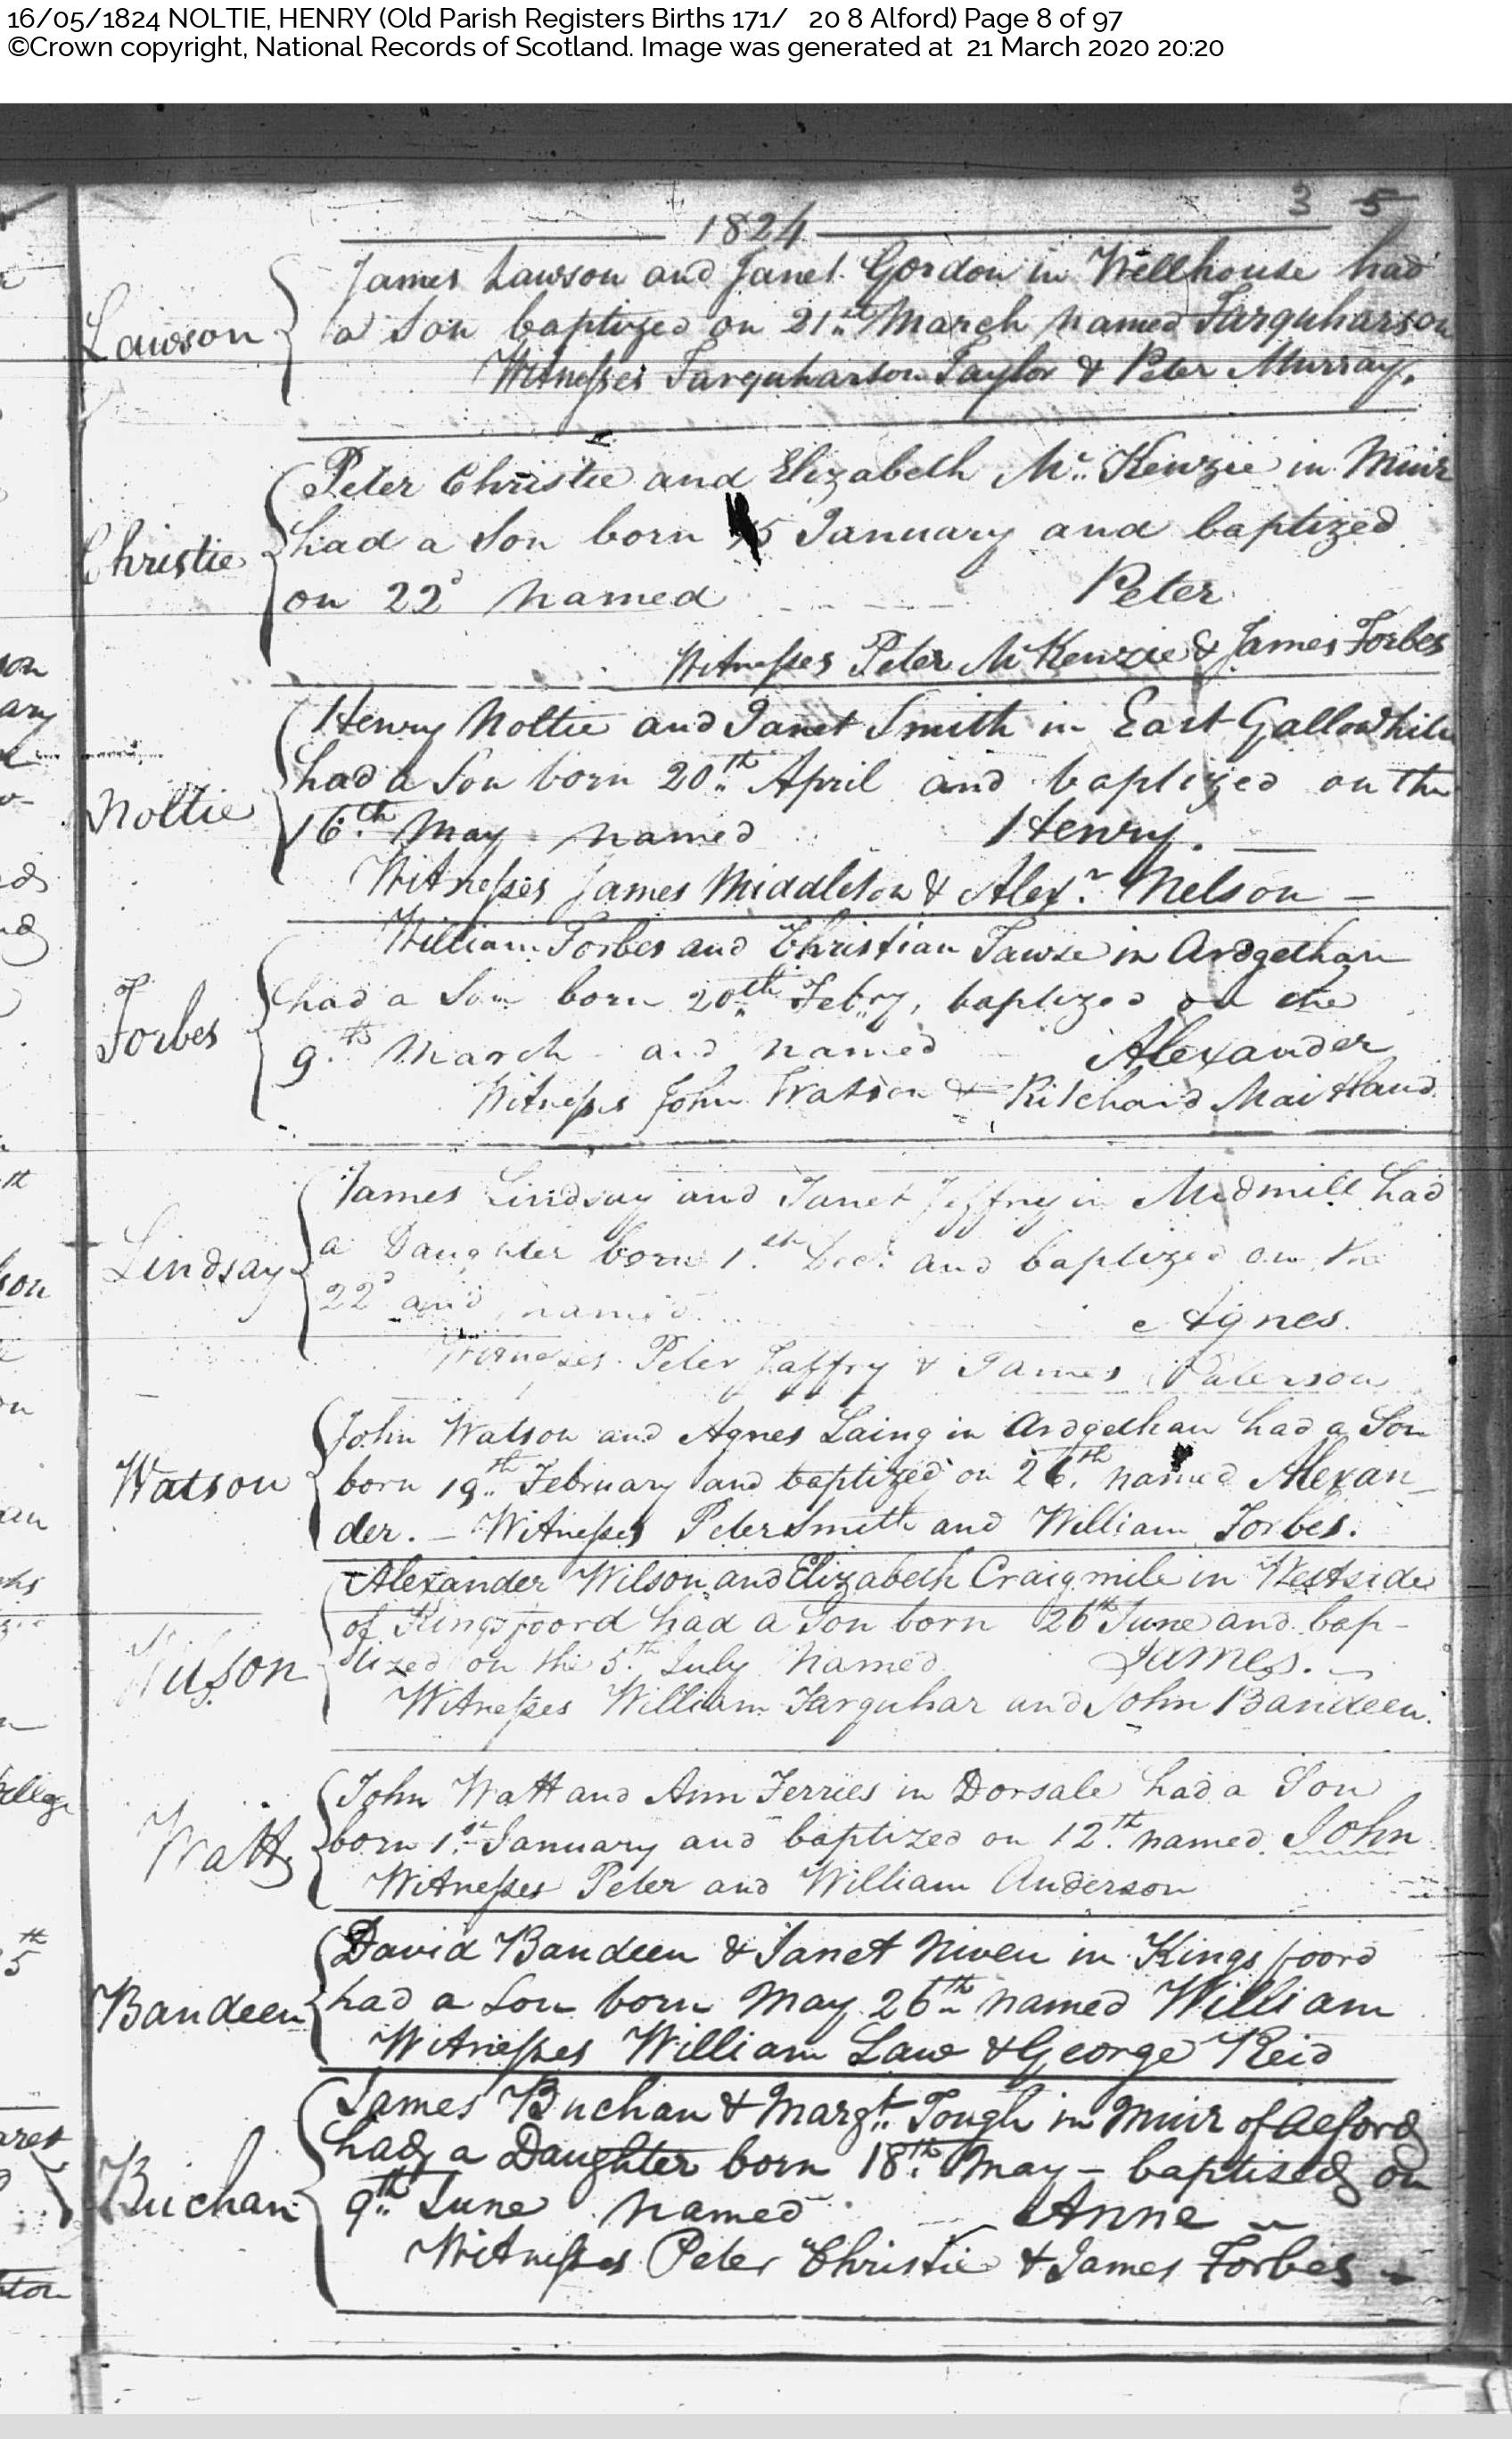 16/05/1824 NOLTIE, HENRY (Old Parish Registers Births 171/ 20 8 Alford) Page 8 of 97
©Crown copyright, National Records of Scotland. Image was generated at 21 March 2020 20:20
3 5
1824
James Lawson and Janet Gordon in Wellhouse had
Lawson a Son baptized on 21st March named Farquharson
Witnesses Farquharson Taylor & Peter Murray.
Peter Christie and Elizabeth Mc. Kenzie in Muir
Christie had a Son born 15 January and baptized
on 22d named Peter
Witnesses Peter McKenzie & James Forbes
Henry Noltie and Janet Smith in East Gallowhill
had a Son born 20th April and baptized on the
Noltie 16th May named Henry.
Witnesses James Middleton & Alexr. Melson
William Forbes and Christian Tawse in Ardgethan
had a Son born 20th Febry, baptized on the
Forbes 9th March and named Alexander
Witnesses John Watson & Ritchard Maitland.
James Lindsay and Janet Jeffrey in Midmill had
Lindsay a Daughter born 1st Decr. and baptized on the
22d and named Agnes.
Witnesses Peter Jaffry & James Paterson
John Watson and Agnes Laing in Ardgethan had a Son
Watson born 19th February and baptized on 26th named Alexan
der. - Witnesses Peter Smith and William Forbes.
Alexander Wilson and Elizabeth Craigmile in Westside
of Kingsfoord had a Son born 26th June and bap-
Wilson tized on the 5th July named James.
Witnesses William Farquhar and John Bandeen.
John Watt and Ann Ferries in Dorsale had a Son
Watt born 1st January and baptized on 12th named John
Witnesses Peter and William Anderson
David Bandeen & Janet Niven in Kingsfoord
Bandeen had a Son born May 26th named William
Witnesses William Law & George Reid
James Buchan & Margt. Tough in Muir of Alford
had a Daughter born 18th May - baptised on
Buchan 9th June named Anne
Witnesses Peter Christie & James Forbes